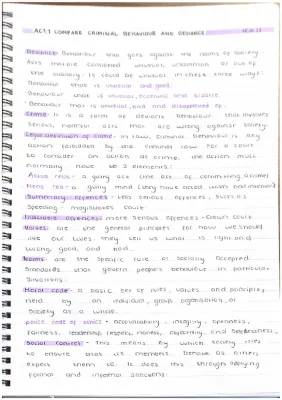 AC1.1 COMPARE CRIMINAL BEHAVIOUR AND DEVIANCE
Deviance: Behaviour that goes against the norms of society
It could be unusual in these three ways:
Behaviour that is unusual and good.
Behaviour that is unusual, eccentric and bizarre.
Behaviour that is unusual, and disapproved of.
Crime: It is a form of deviant behaviour that involves
serious, harmful acts that are wrong against society.
Legal definition of crime: in law, criminal behaviour is any
action forbidden by the criminal law. For a court
to consider an action as crime, the action must
normally have to 2 elements:
Actus reus - a guilty act (the act of committing a crime)
Mens rea - a guilty mind (they have acted with bad intention)
Summary offences - less serious offences, such as
speeding / magistrates court
Indictable offences: more serious offences - Crown court
Values: are the general principles for how we should
live our lives. They tell us what is right and
wrong, good and bad.
Norms: are the specific rules or socially accepted
standards that govern people's behaviour in particular
situations.
Moral code - a basic set of rules, values, and principles,
held by an individual, group, organisation, or
society as a whole.
police code of ethics - accountability, integrity, openness,
fairness, leadership, respect, honesty, objectivity, and selflessness.
Social Control - this means by which society tries
to ensure that its members behave as others
expect them to. It does this through applying
formal and informal sanctions.